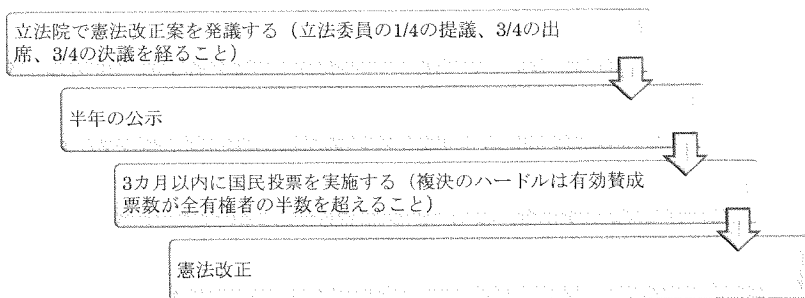 立法院で憲法改正案を発議する（立法委員の1/4の提議、3/4の出
席、3/4の決議を経ること）
半年の公示
3カ月以内に国民投票を実施する（複決のハードルは有効賛成
票数が全有権者の半数を超えること）
憲法改正